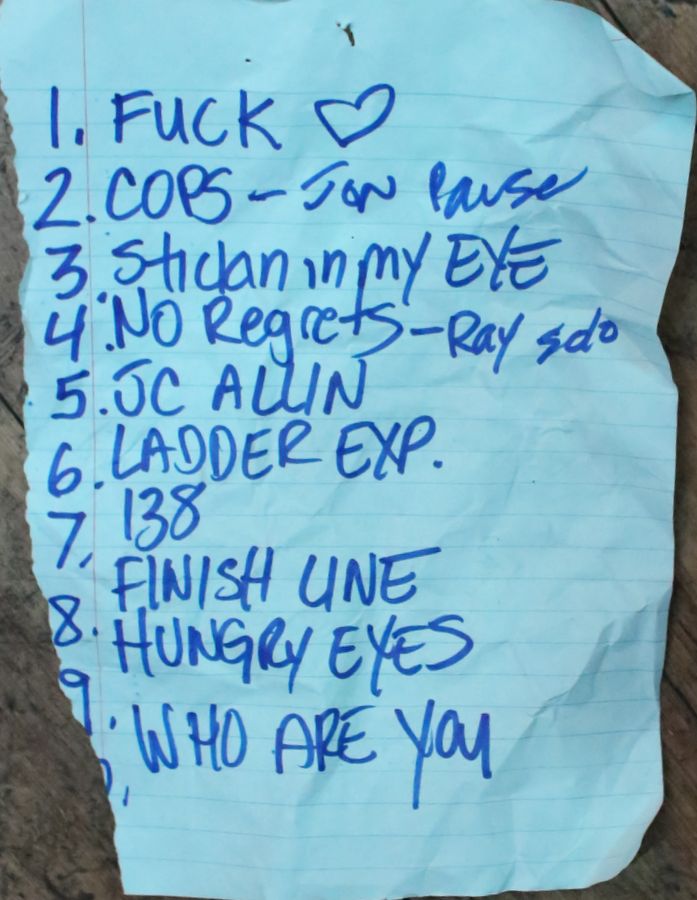 1. FUCK ♡
2. COPS - Jon Pause
3. Stickin in my EYE
4. NO Regrets - Ray solo
5. JC ALLIN
6. LADDER EXP.
7. 138
8. FINISH LINE
9. HUNGRY EYES
WHO ARE YOU